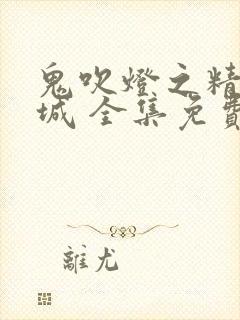 鬼吹燈之精
城 全集免費
離尤